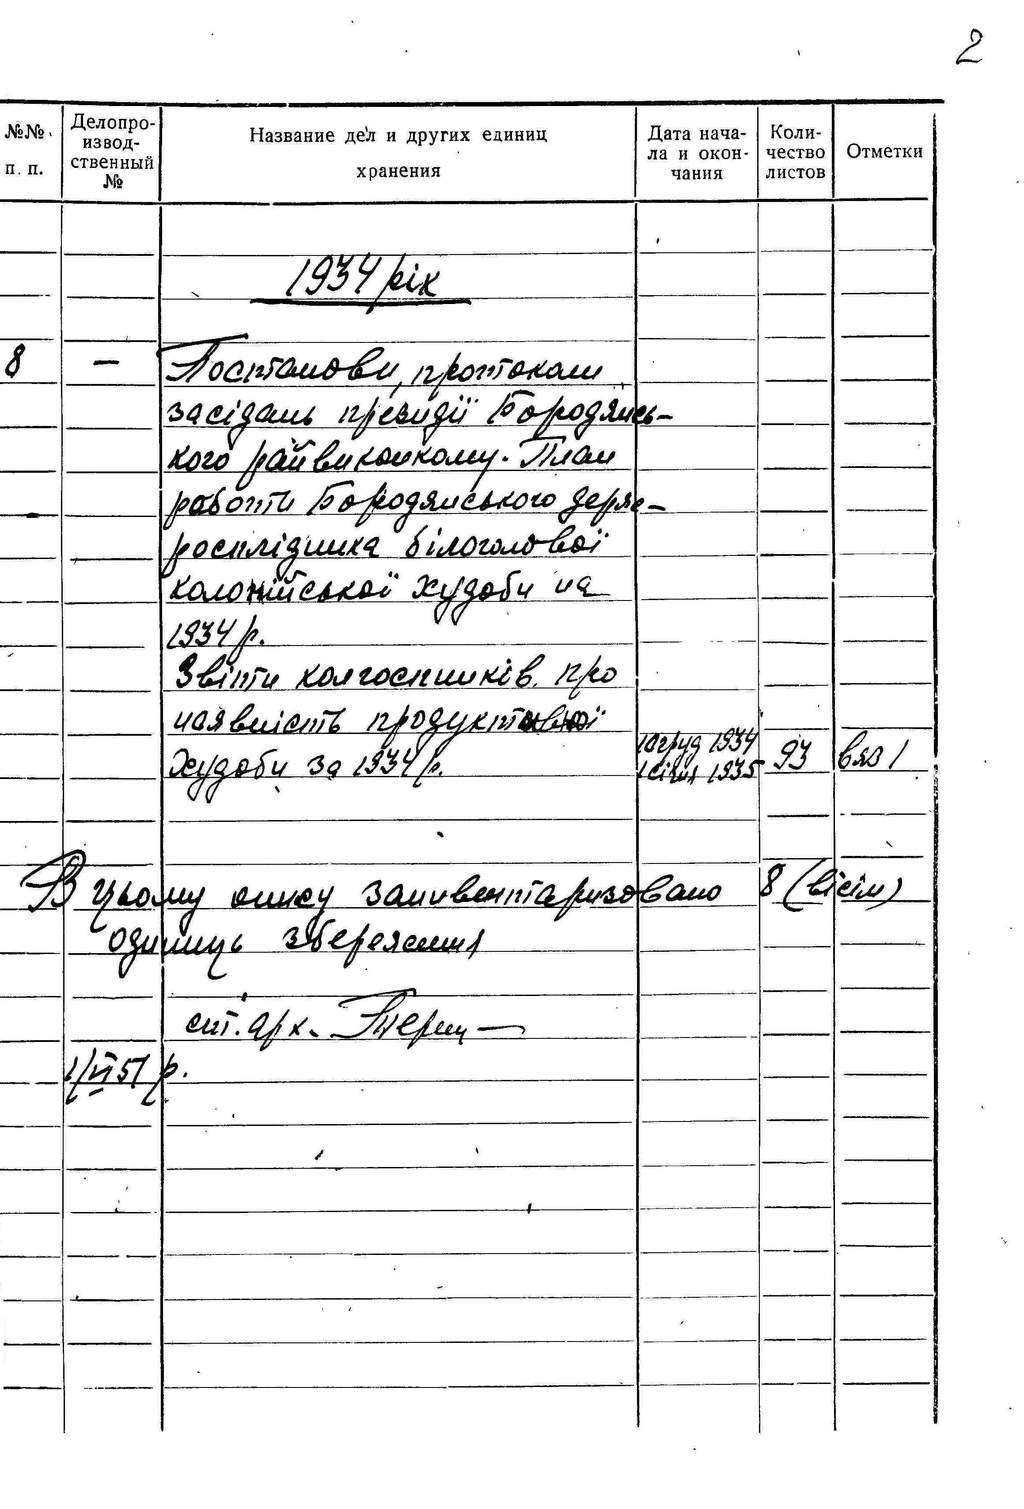 2
№№ п. п.
Делопроизводственный №
Название дел и других единиц хранения
Дата начала и окончания
Количество листов
Отметки
1934 рік
8 — Постанови, протоколи
засідань президії Бородянсь-
кого райвиконкому. План
роботи Бородянського держ-
росплідника білоголової
колонійської худоби на
1934 р.
Звіти колгоспників про
наявність продуктивної
худоби за 1934 р.
10 груд 1934
1 січня 1935
93
вяз 1
В цьому опису заинвентаризовано 8 (вісім)
одиниць збереження
ст. арх.
1/VI 51 р.